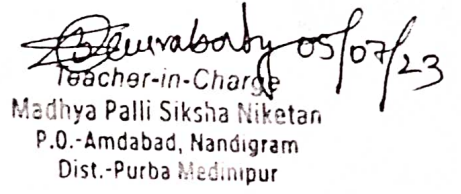 05/07/23
Teacher-in-Charge
Madhya Palli Siksha Niketan
P.O.-Amdabad, Nandigram
Dist.-Purba Medinipur